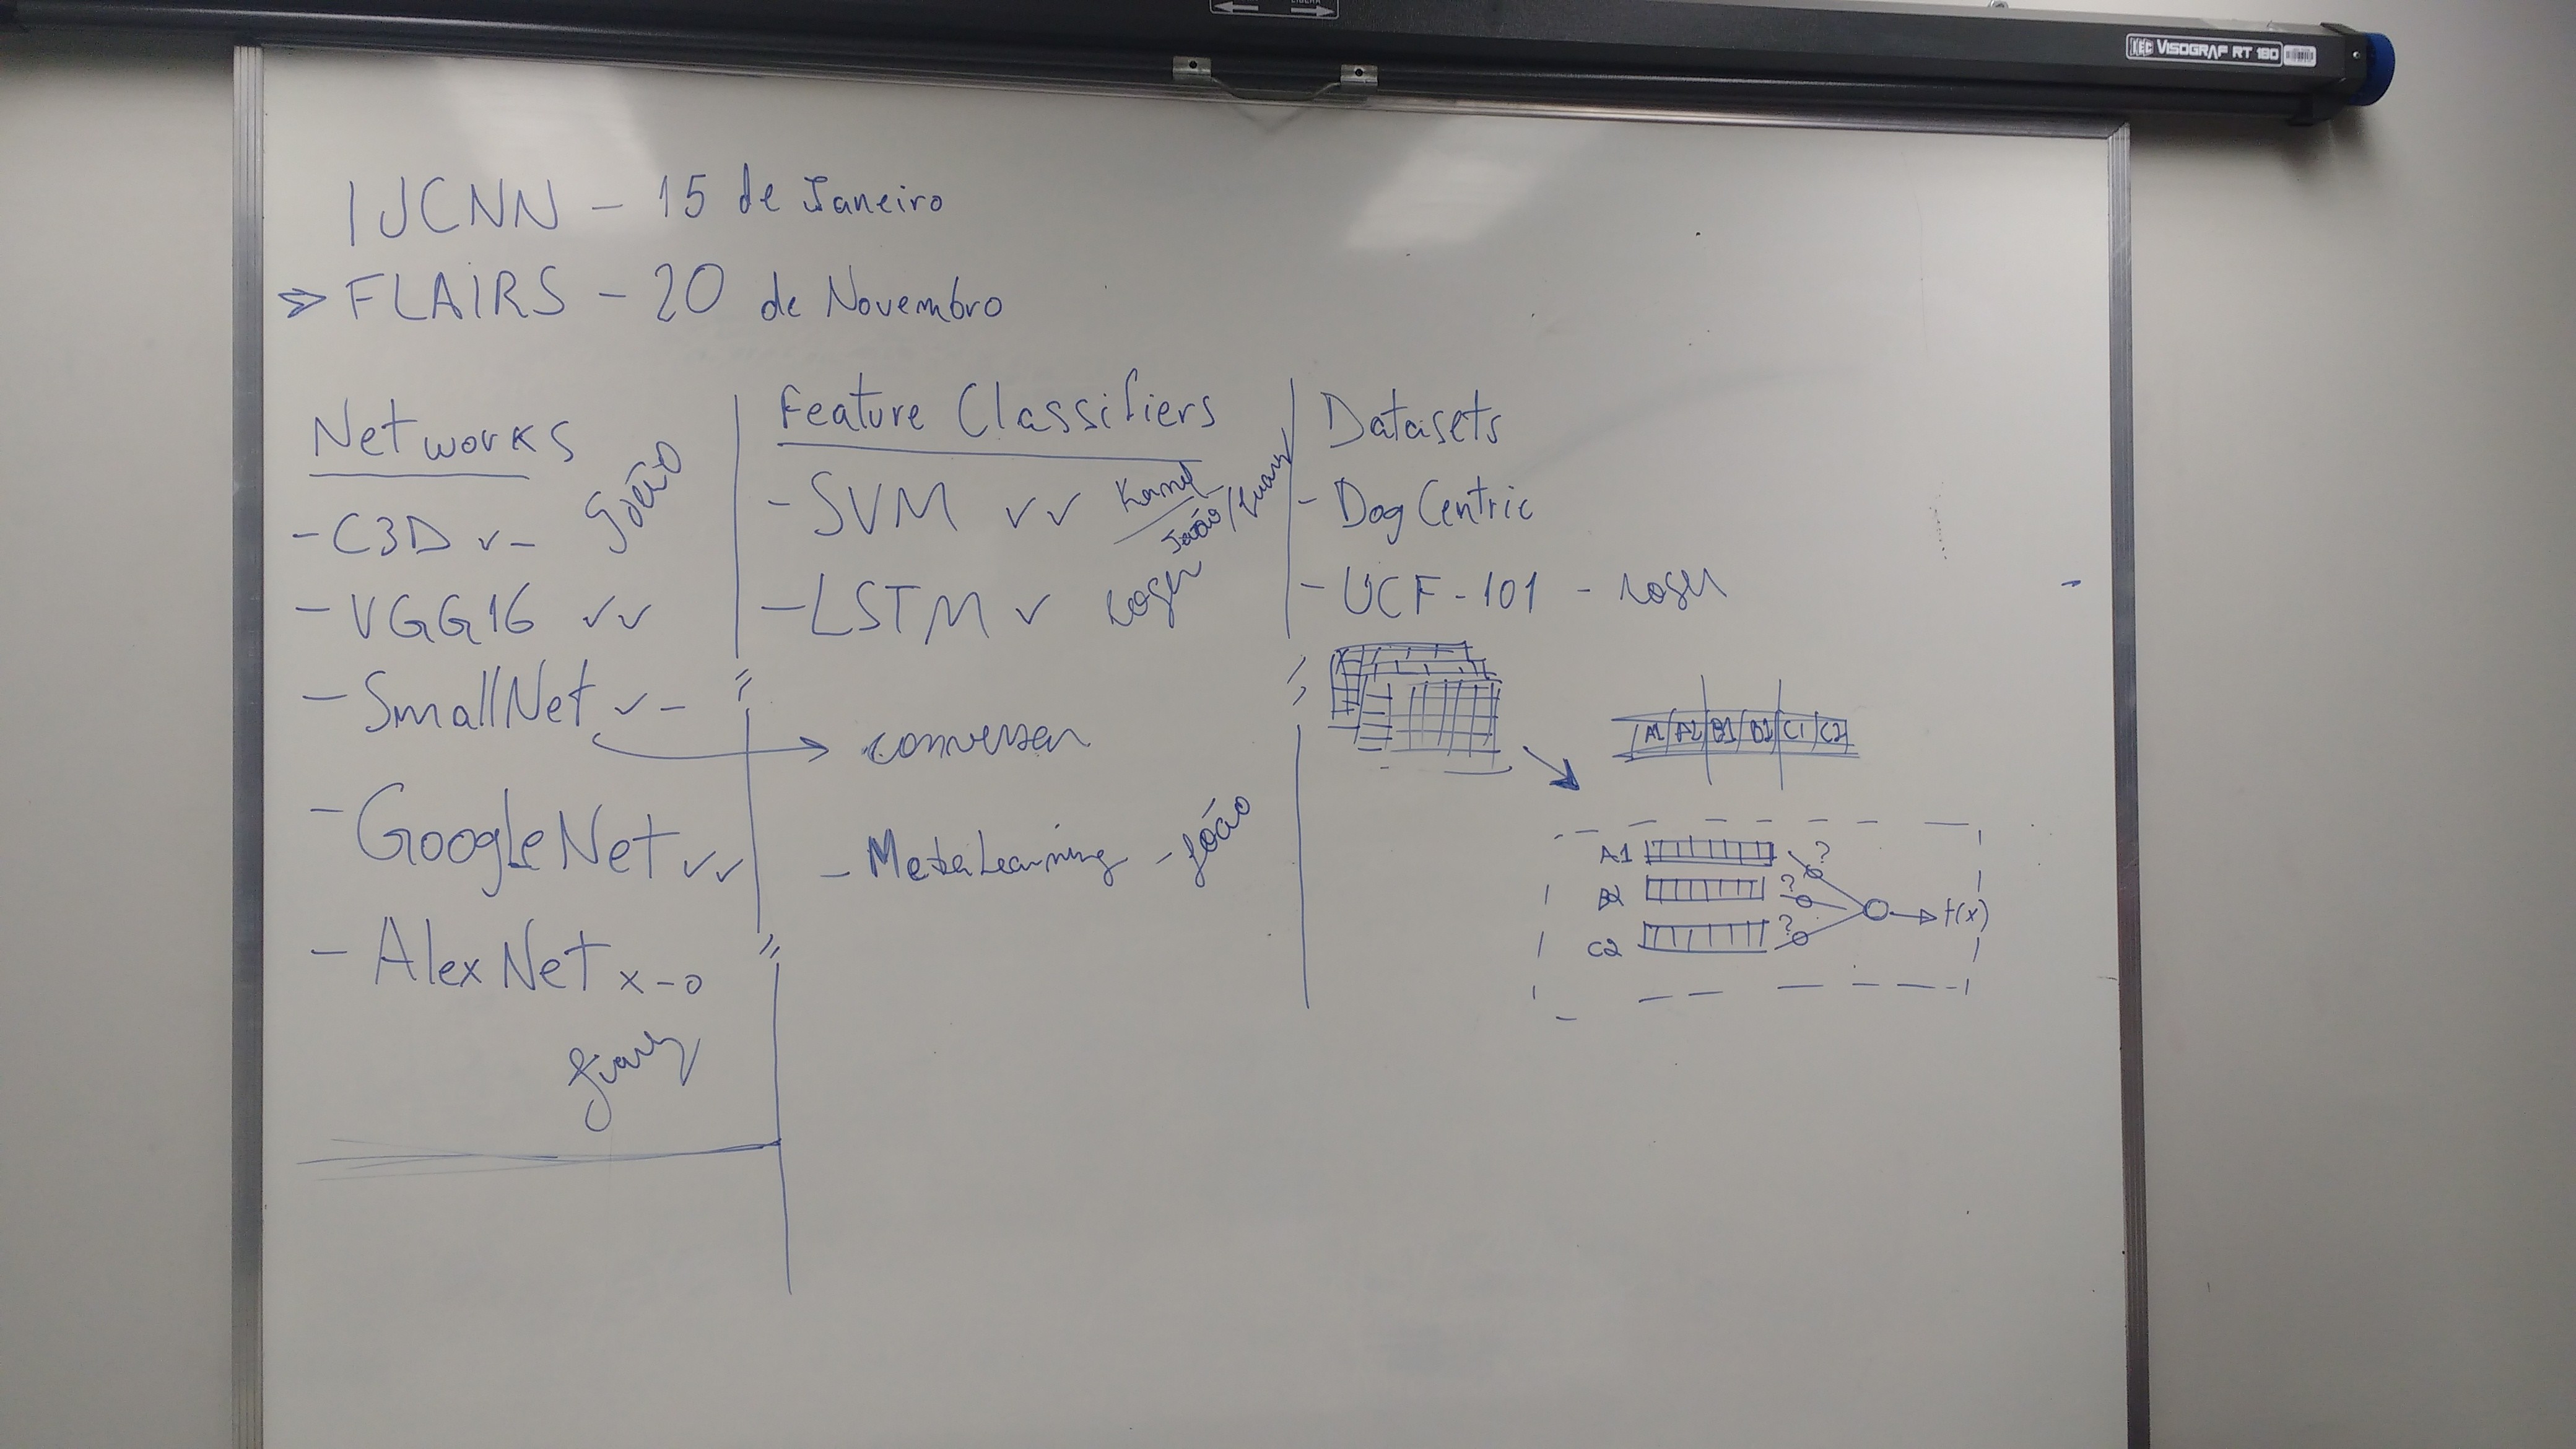 VISOGRAF RT 180
IJCNN - 15 de Janeiro
> FLAIRS - 20 de Novembro
Networks
João
- C3D ✓ -
- VGG16 ✓✓
- SmallNet ✓ -
- GoogleNet ✓✓
- AlexNet x - o
Feature Classifiers
- SVM ✓✓
João / Juarez
- LSTM ✓ Roger
conversar
- MetaLearning - João
Datasets
- DogCentric
- UCF-101 - Roger
A1 A2 B1 B2 C1 C2
A1 ?
B2 ?
C2 ?
f(x)